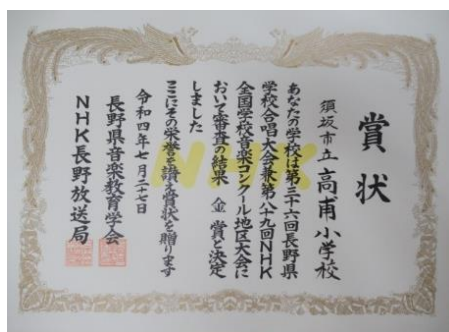 賞状
須坂市立高甫小学校
あなたの学校は第三十六回長野県
学校合唱大会兼第八十九回NHK
全国学校音楽コンクール地区大会に
おいて審査の結果 金賞と決定
しました
ここにその栄誉を讃え賞状を贈ります
令和四年七月二十七日
長野県音楽教育学会
NHK長野放送局
NHK